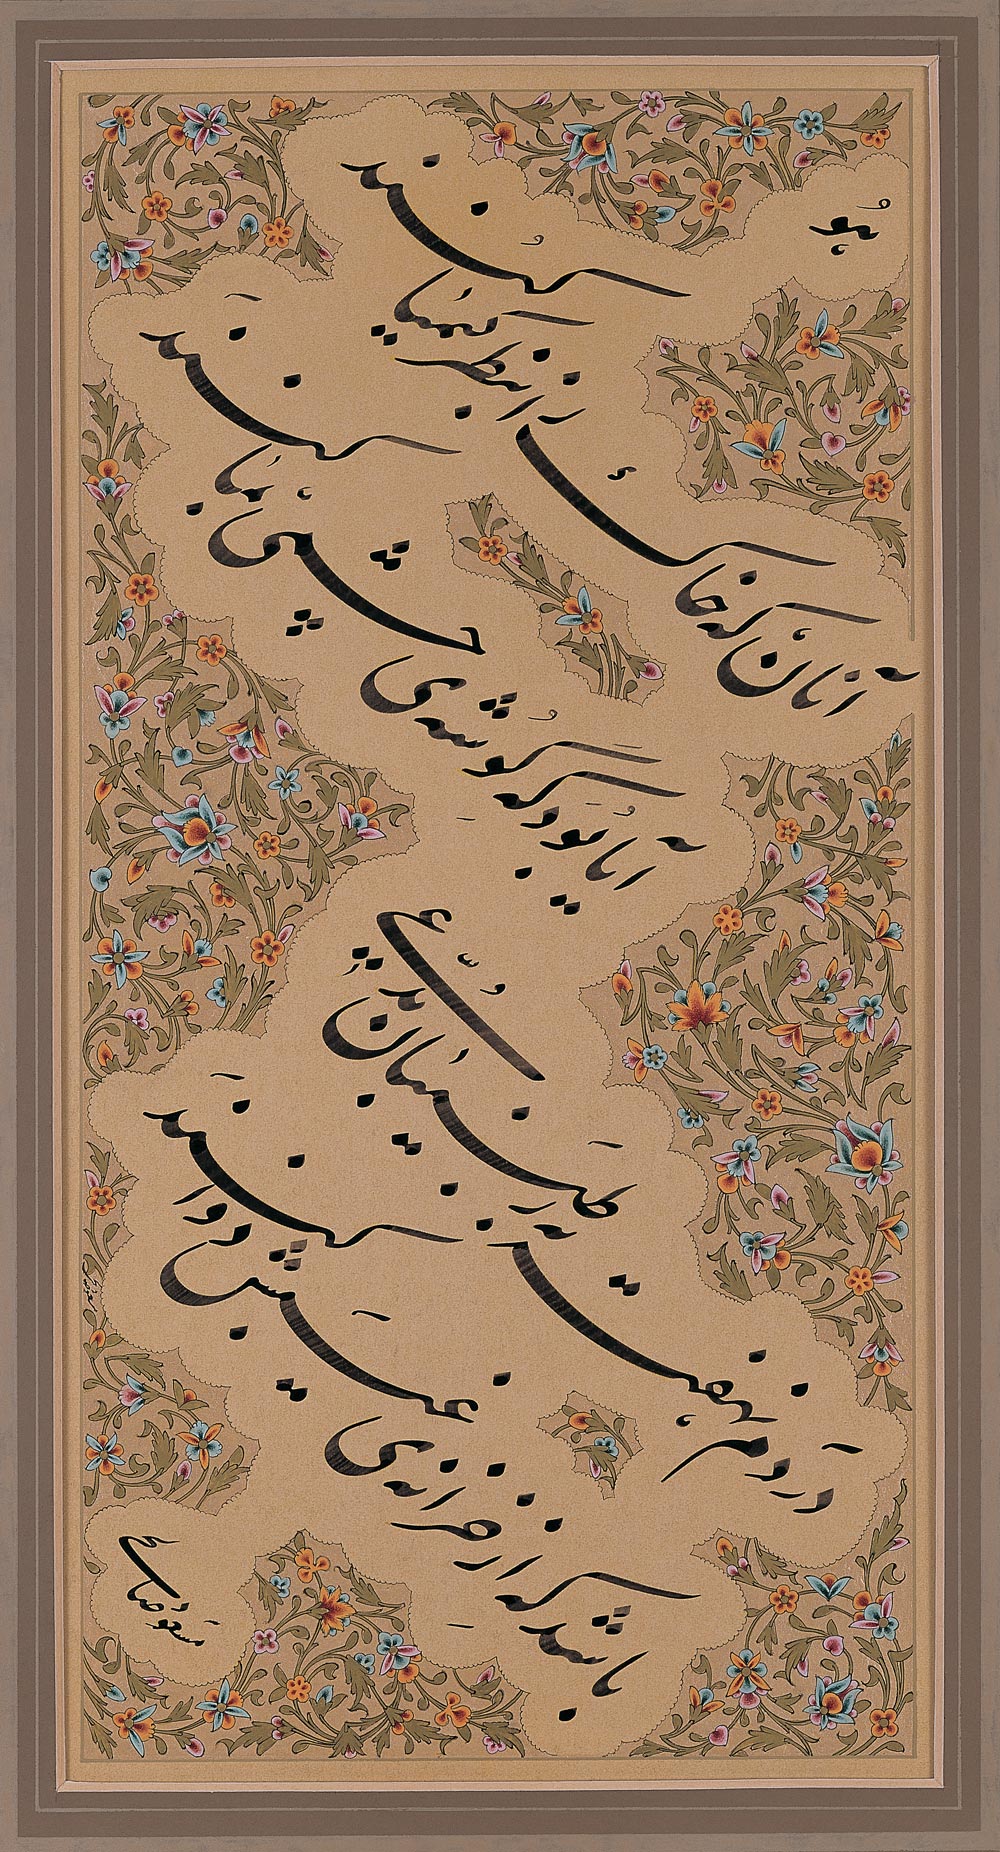 هو
آنان که خاک را به نظر کیمیا کنند
آیا بود که گوشه‌ی چشمی به ما کنند
دردم نهفته به ز طبیبان مدعی
باشد که از خزانه‌ی غیبش دوا کنند